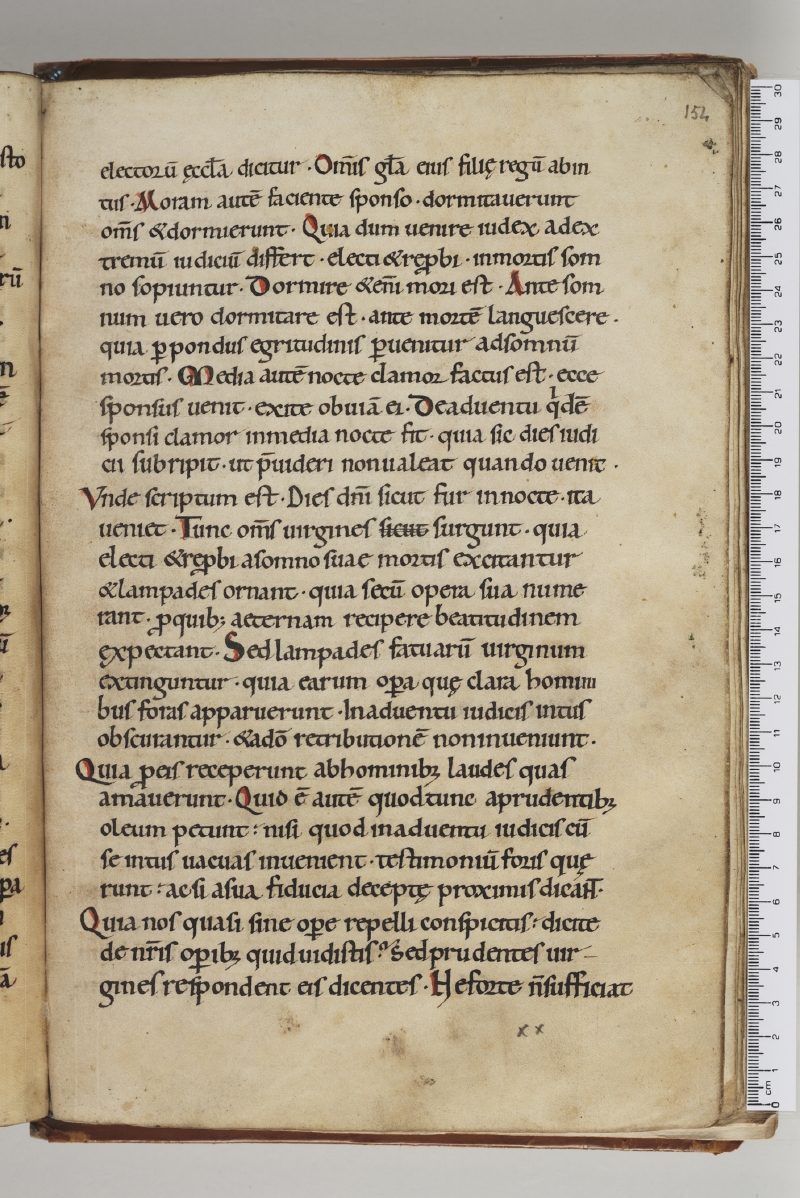 154
electorū ęccła dicitur · Om̄s gła eius filię regū abin
tus · Moram autē faciente sponso · dormitauerunt
om̄s & dormierunt · Quia dum uenire iudex adex
tremū iudiciū differt · electi & rep̱bi · inmortis som
no sopiuntur · Dormire & eni̅ mori est · Ante som
num uero dormitare est · ante mortē languescere ·
quia p̱ pondus egritudinis p̱uenitur adsomnū
mortis · Media autē nocte clamor factus est · ecce
sponsus uenit · exite obuiā ei · De aduentu qͥdē
sponsi clamor inmedia nocte fit · quia sic dies iudi
cii subripit · ut p̄uideri non ualeat quando uenit ·
Vnde scriptum est · Dies dn̄i sicut fur innocte · ita
ueniet · Tunc om̄s uirgines sicut surgunt · quia
electi & rep̱bi asomno suae mortis excitantur
& lampades ornant · quia secū opera sua nume
rant · p̱ quib; aeternam recipere beatitudinem
ęxpectant · Sed lampades fatuarū uirginum
extinguntur · quia earum op̱a quę clara homini
bus foras apparuerunt · Inaduentu iudicis intus
obscurantur · & adō retributionē noninueniunt ·
Quia p̱ eis receperunt abhominib; laudes quas
amauerunt · Quid ē autē quod tunc aprudentib;
oleum petunt : nisi quod inaduentu iudicis cū
se intus uacuas inuenient · testimoniū foris quę
runt : acsi asua fiducia deceptę proximis dicant ·
Quia nos quasi sine op̱e repelli conspicitis : dicite
de nr̄is op̱ib; quid uidistis ? Sed prudentes uir
gines respondent eis dicentes · Neforte n̄ sufficiat
x x